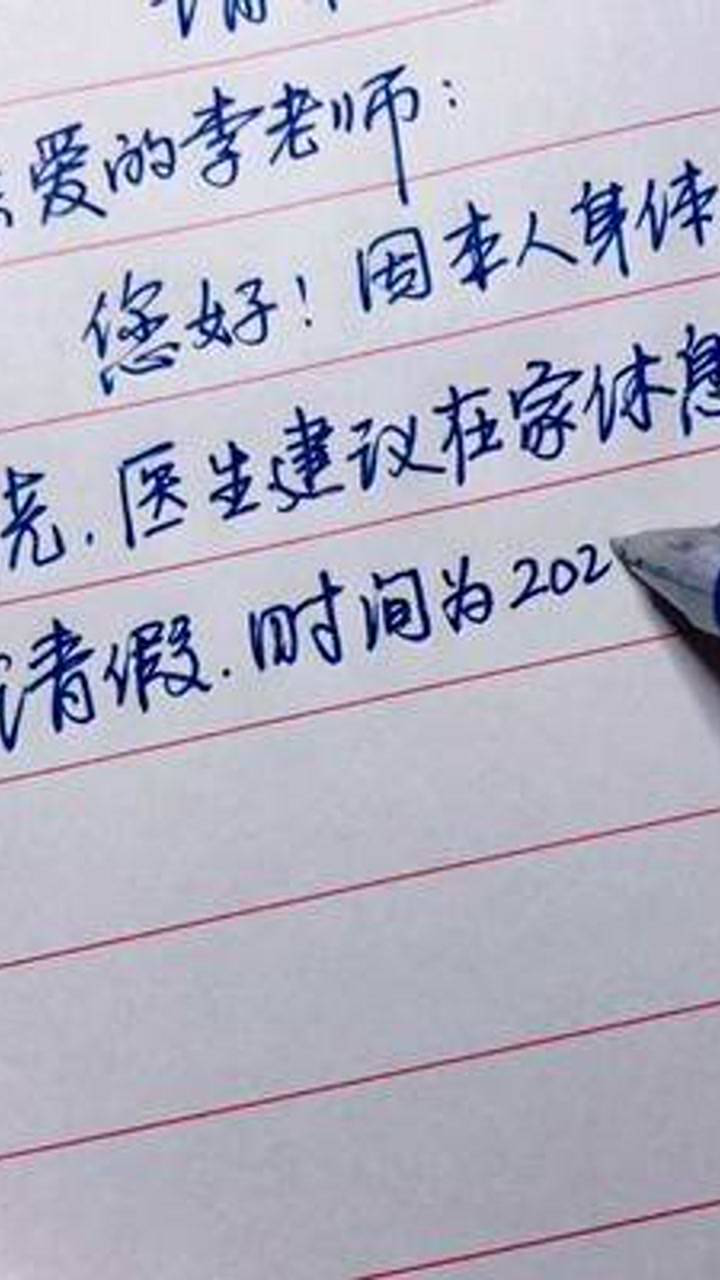 爱的李老师：
您好！因本人身体
，医生建议在家休息
请假，时间为202